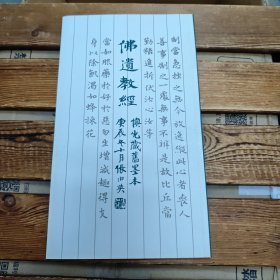 制當急挫之無令放逸縱此心者喪人
善事制之一處無事不辦是故比丘當
勤精進折伏汝心汝等
藏舊墨本
佛遺教經
庚辰十月張
當如服藥於好於惡勿生增減趣得支
身以除飢渴如蜂採花